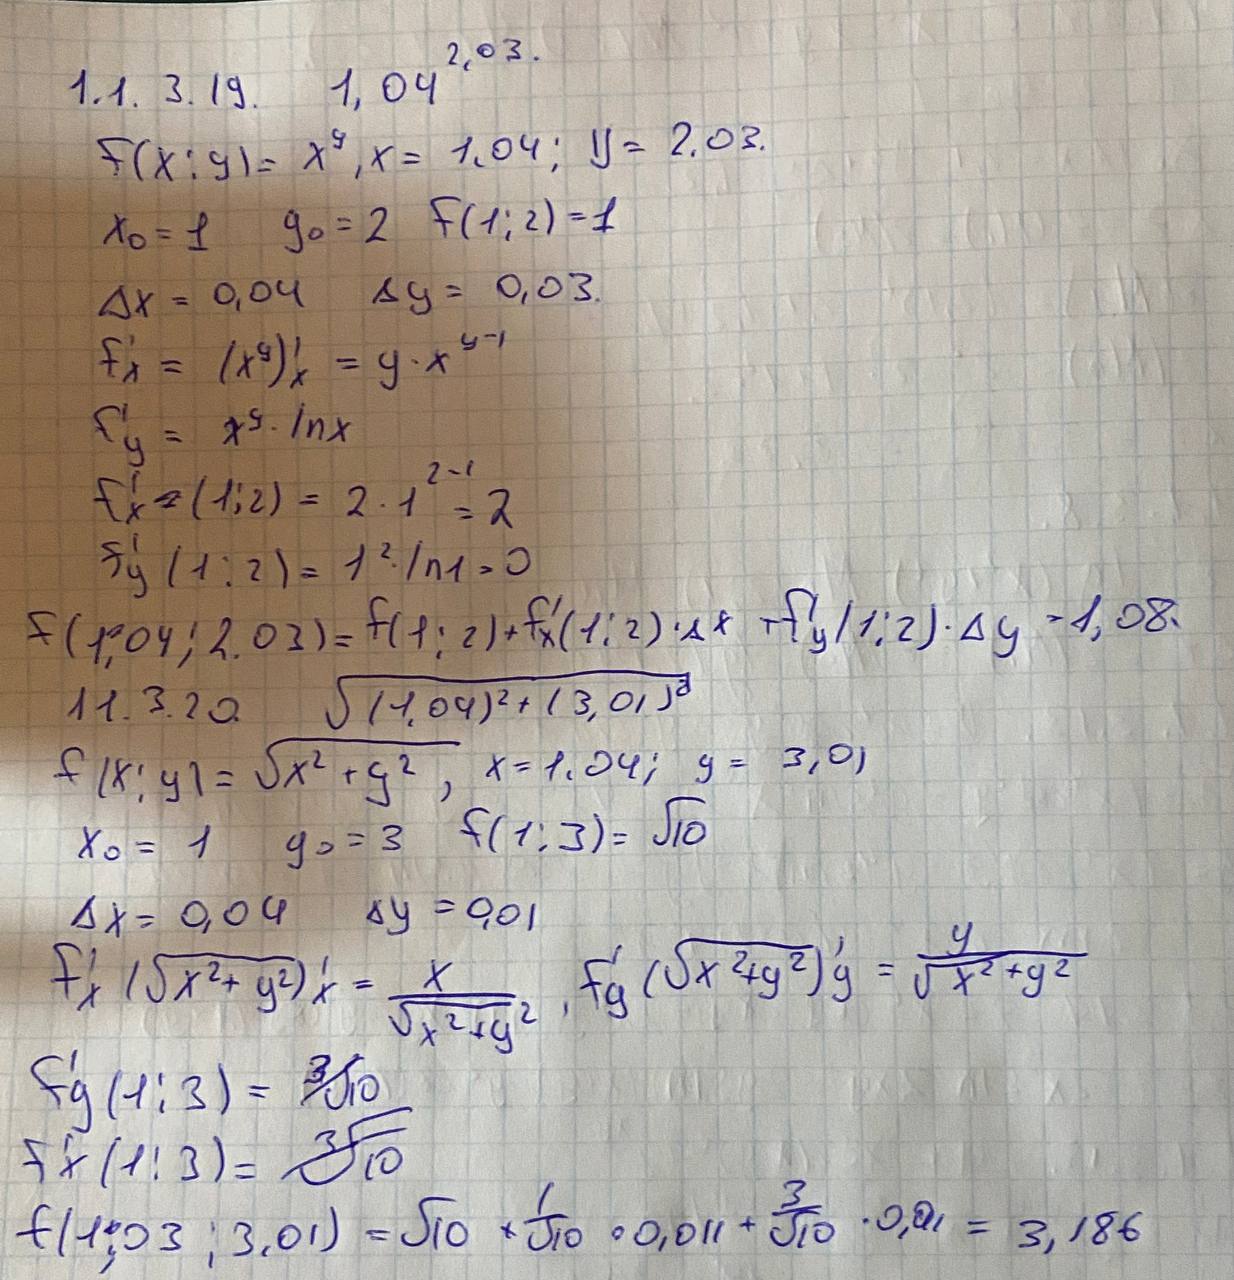 1.1. 3.19. 1,04^2,03.
f(x;y)= x^y, x= 1.04; y= 2.03.
x₀=1 y₀=2 f(1;2)=1
Δx = 0,04 Δy = 0,03.
f'x = (x^y)'x = y·x^y-1
f'y = x^y·lnx
f'x (1;2) = 2·1^2-1 = 2
f'y (1;2) = 1²·ln1=0
f(1,04;2.03)=f(1;2)+f'x(1;2)·Δx +f'y(1;2)·Δy =1,08.
11.3.20. √(1,04)²+(3,01)²
f(x;y)=√x²+y², x=1.04; y= 3,01
x₀= 1 y₀=3 f(1;3)= √10
Δx= 0,04 Δy =0,01
f'x (√x²+y²)'x = x/√x²+y², f'y (√x²+y²)'y = y/√x²+y²
f'y (1;3) = 3/√10
f'x (1;3)=
f(1,03;3,01) =√10 + 1/√10 · 0,011 + 3/√10 ·0,01 = 3,186